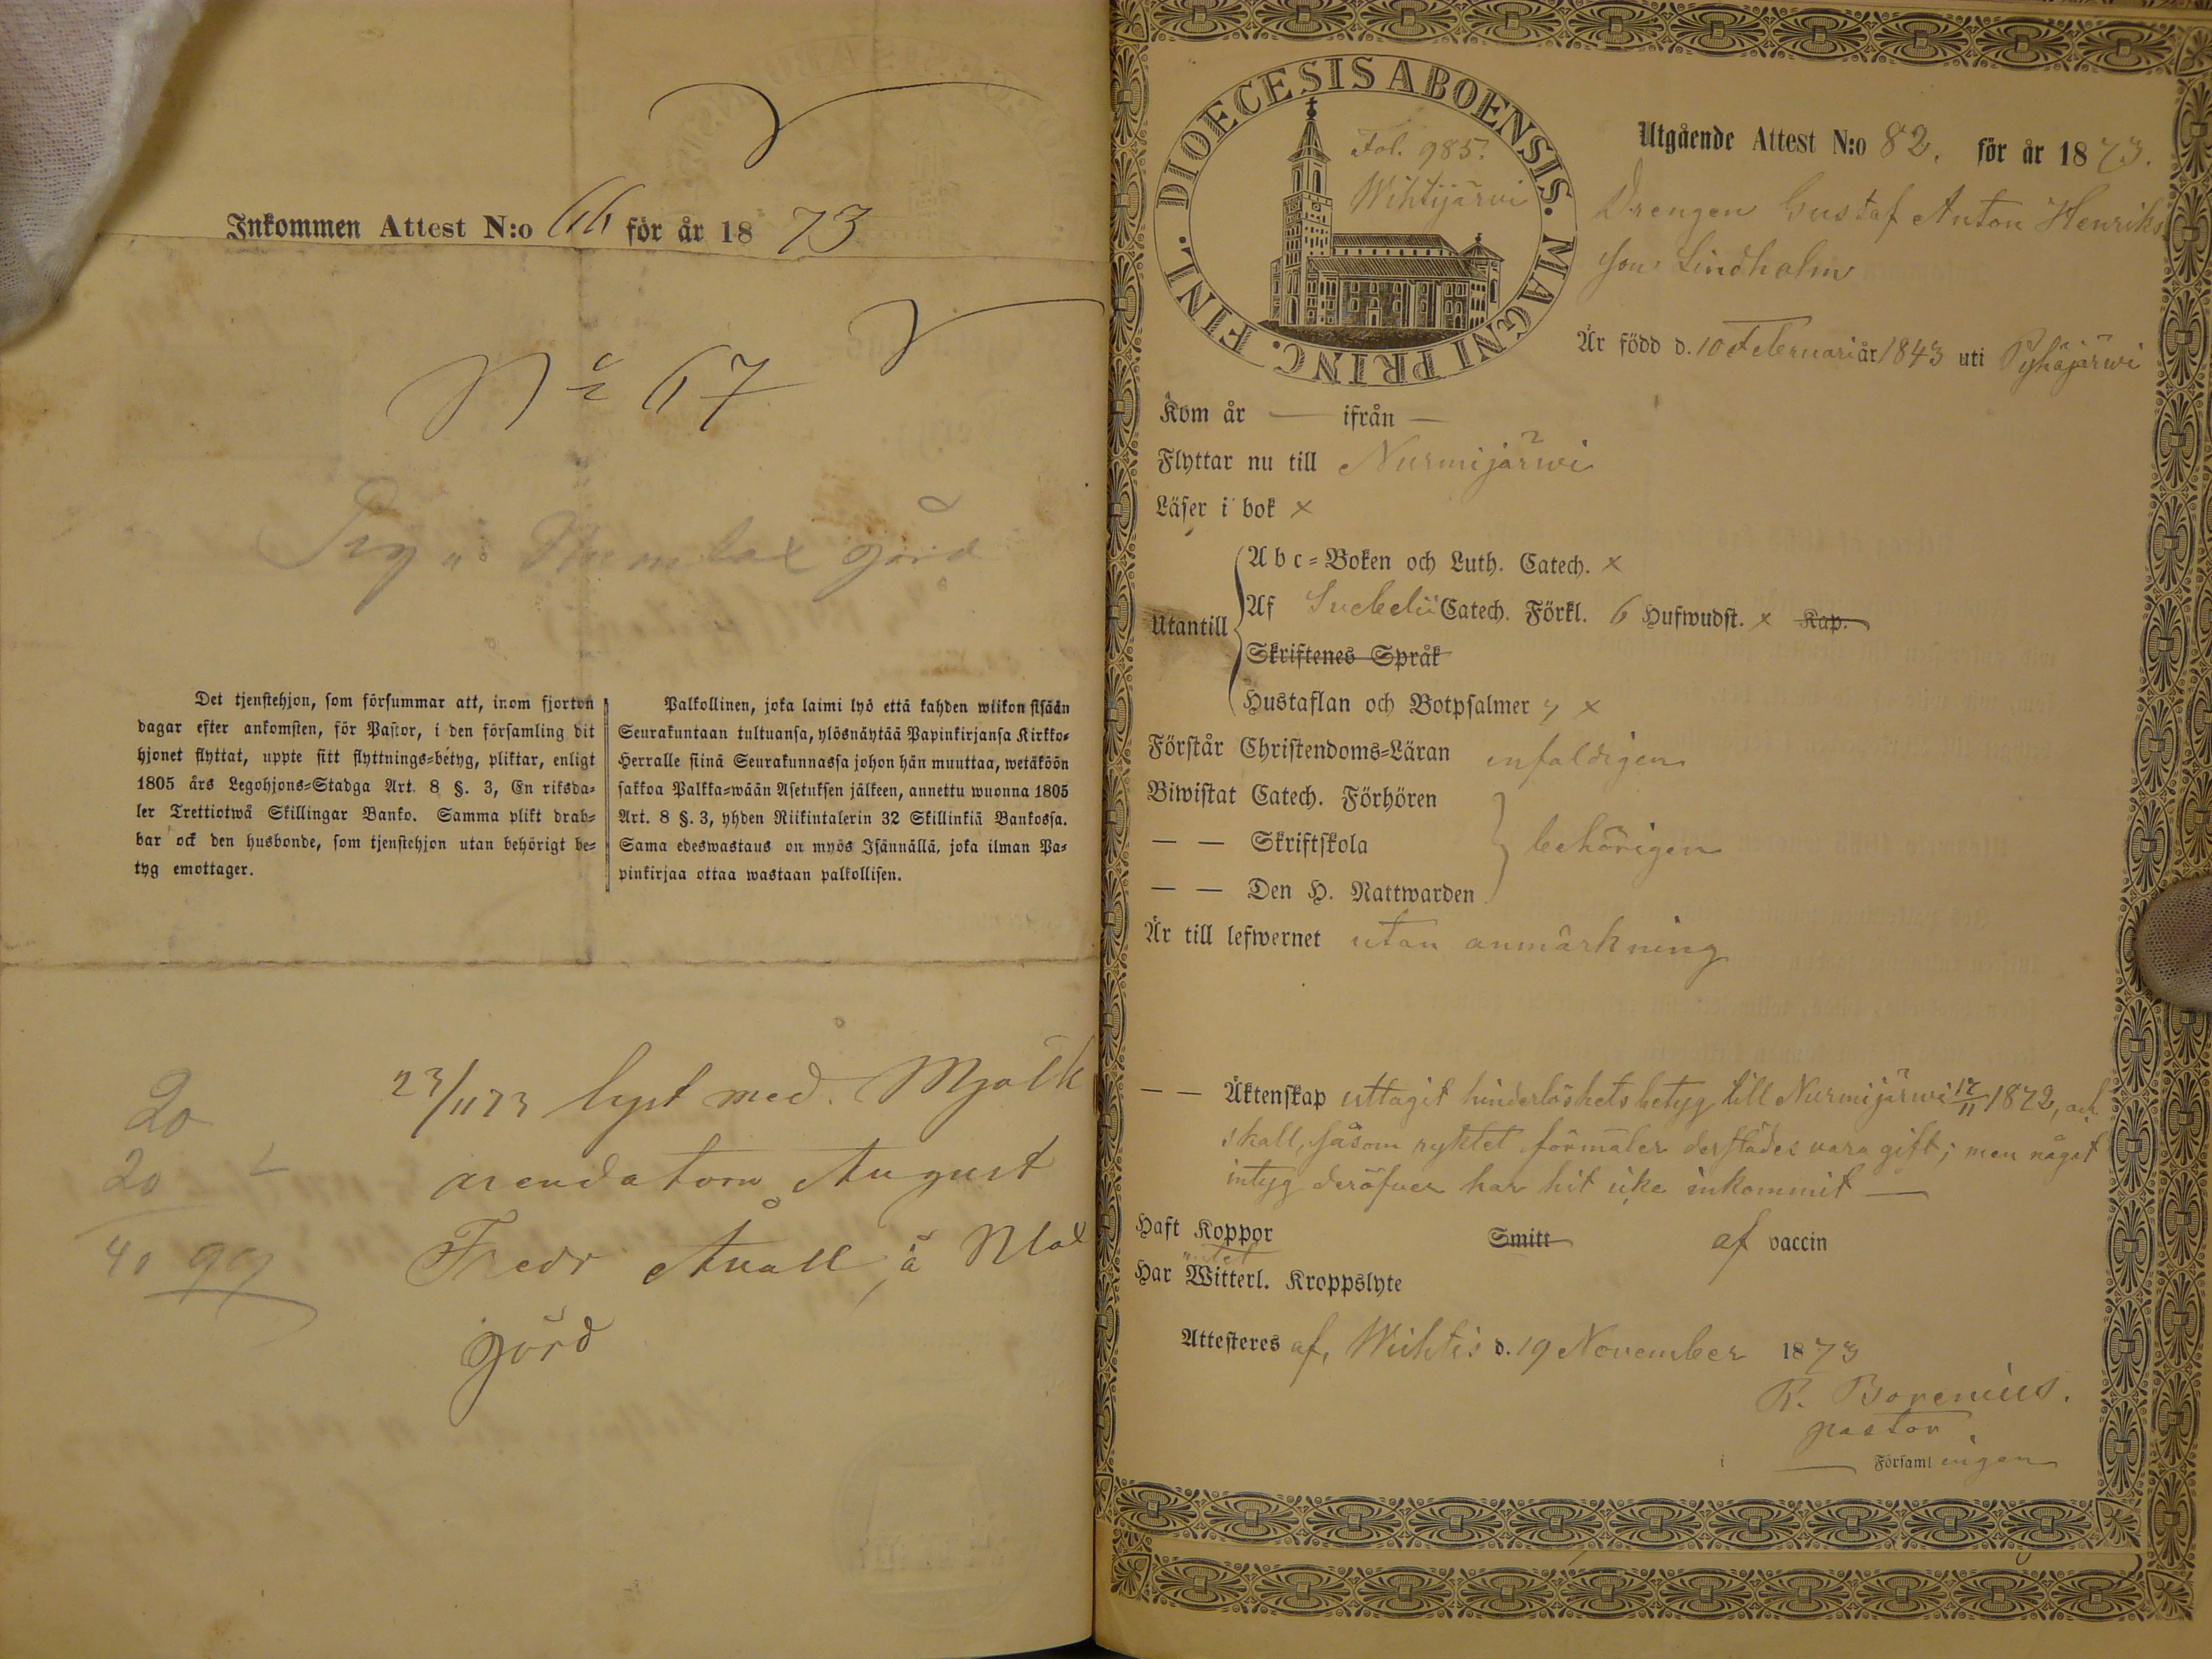 Inkommen Attest N:o 66 för år 1873
No 67
gård
Det tjenstehjon, som försummar att, inom fjorton
dagar efter ankomsten, för Pastor, i den församling dit
hjonet flyttat, uppte sitt flyttnings=betyg, pliktar, enligt
1805 års Legohjons=Stadga Art. 8 §. 3, En riksda=
ler Trettiotwå Skillingar Banko. Samma plikt drab=
bar ock den husbonde, som tjenstehjon utan behörigt be=
tyg emottager.
Palkollinen, joka laimi lyö että kahden wiikon sisään
Seurakuntaan tultuansa, ylösnäytää Papinkirjansa Kirkko=
Herralle siinä Seurakunnassa johon hän muuttaa, wetäköön
sakkoa Palkka=wään Asetuksen jälkeen, annettu wuonna 1805
Art. 8 §. 3, yhden Riikintalerin 32 Skillinkiä Bankossa.
Sama edeswastaus on myös Isännällä, joka ilman Pa=
pinkirjaa ottaa wastaan palkollisen.
20
20
40
23/11 73 lyst med. Mjölk
arendatorn August
Fredr å
gård
FINL. DIOECESIS ABOENSIS. MAGNI PRINC.
Fol. 985.
Wihtijärwi
Utgående Attest N:o 82. för år 1873.
Drengen Gustaf Anton Henriks
son Lindholm
Är född d. 10 Februari år 1843 uti Pyhäjärwi
Kom år — ifrån —
Flyttar nu till Nurmijärwi
Läser i bok x
Utantill
Abc=Boken och Luth. Catech. x
Af Svebelii Catech. Förkl. 6 Hufwudst. x Kap.
Skriftenes Språk
Hustaflan och Botpsalmer 7 x
Förstår Christendoms=Läran enfaldigen
Biwistat Catech. Förhören
— — Skriftskola behörigen
— — Den H. Nattwarden
Är till lefwernet utan anmärkning
— — Äktenskap uttagit hinderlöshets betyg till Nurmijärwi 17/11 1872, och
skall, såsom ryktet förmäler derstädes vara gift; men något
intyg deröfver har hit icke inkommit —
Haft Koppor Smitt af vaccin
intet
Har Witterl. Kroppslyte
Attesteres af, Wichtis d. 19 November 1873
R. Borenius.
pastor.
i — Församlingen